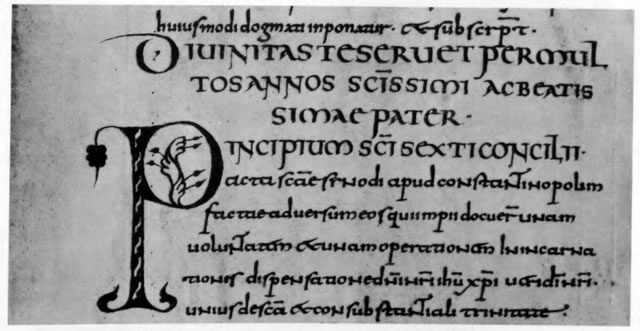 huiusmodi dogmati imponatur· et subscrip̄t·
DIVINITAS TE SERVET PER MUL
TOS ANNOS SC̄ISSIMI AC BEATIS
SIMAE PATER·
PRINCIPIUM SC̄I SEXTI CONCILII·
acta sc̄ae synodi apud constantinopolim
factae adversum eos qui impii docuer̄ unam
voluntatem et unam operationem in incarna
tionis dispensatione dn̄i nr̄i ihū xp̄i
unius de sc̄a et consubstantiali trinitate·